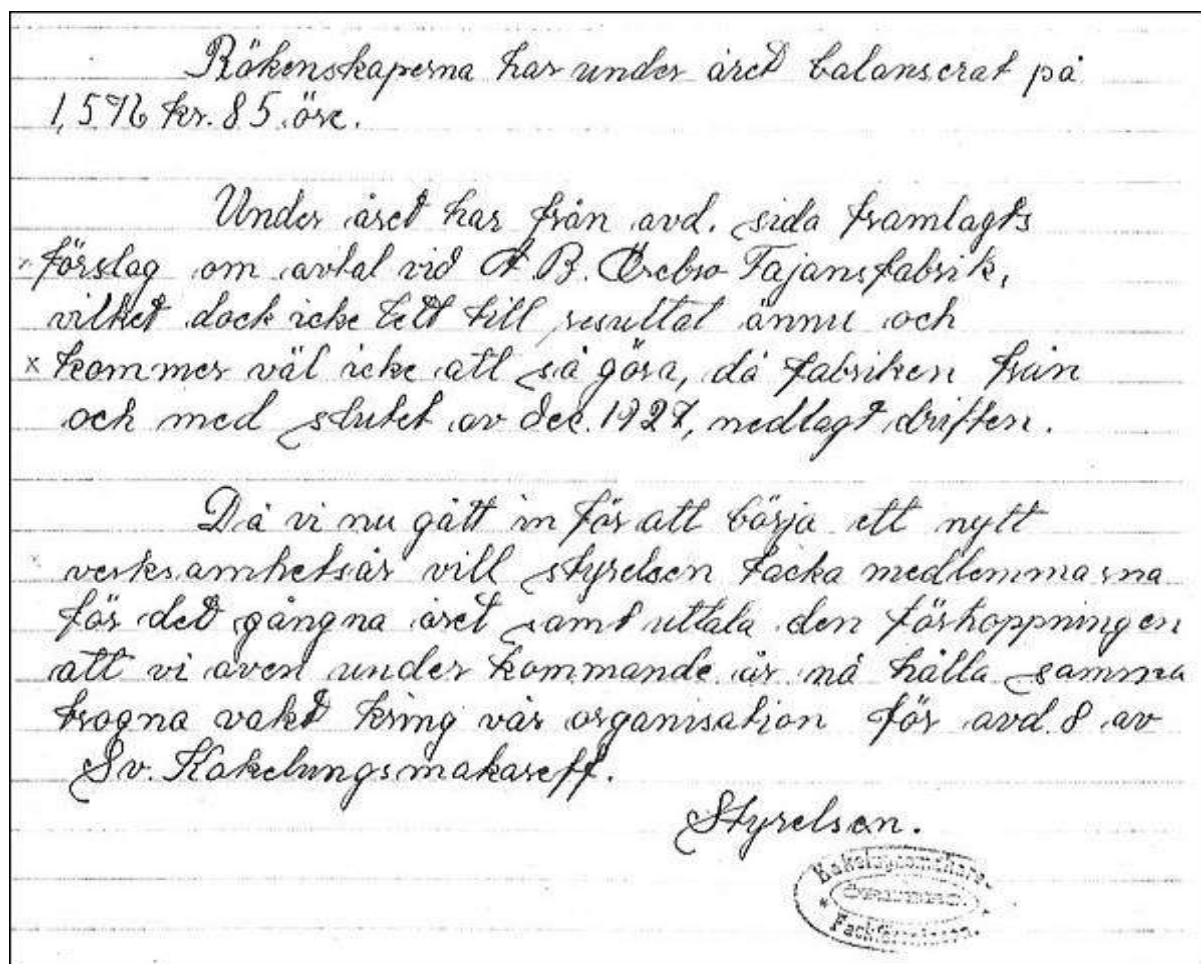 Räkenskaperna har under året balanserat på
1,576 kr. 85 öre.
Under året har från avd. sida framlagts
förslag om avtal vid A B. Örebro Fajansfabrik,
vilket dock icke lett till resultat ännu och
x kommer väl icke att så göra, då fabriken från
och med slutet av dec. 1927, nedlagt driften.
Då vi nu gått in för att börja ett nytt
x verksamhetsår vill styrelsen tacka medlemmarna
för det gångna året samt uttala den förhoppningen
att vi även under kommande år må hålla samma
trogna vakt kring vår organisation för avd. 8 av
Sv. Kakelungsmakareff.
Styrelsen.
Kakelugnsmakare-
ÖREBRO
* Fackföreningen. *